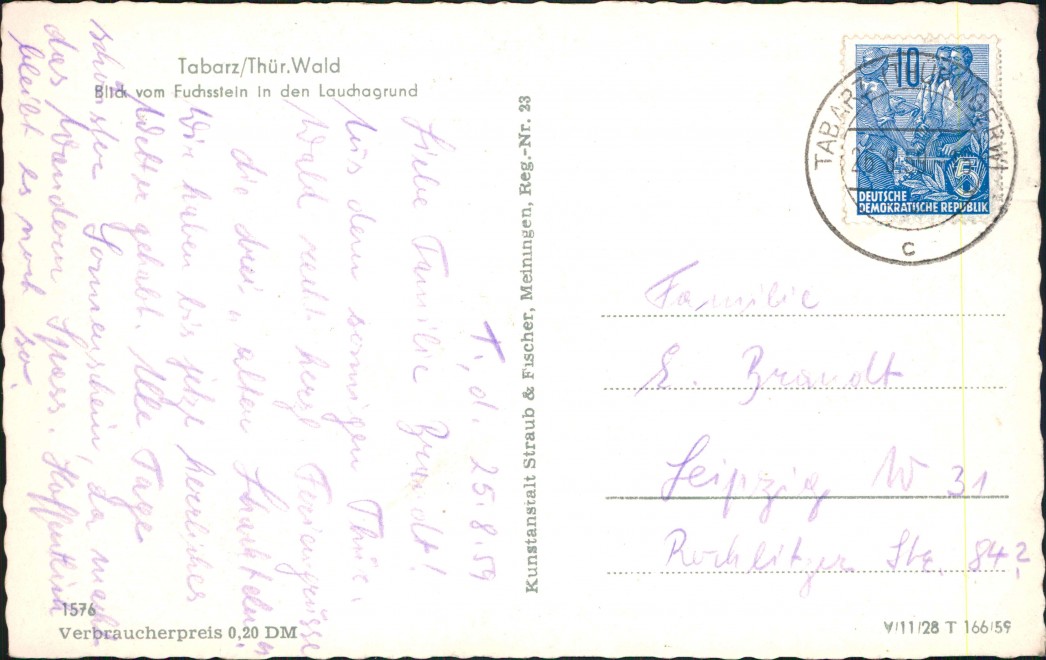 Tabarz/Thür. Wald
Blick vom Fuchsstein in den Lauchagrund
T., d. 25.8.59
Liebe Familie Brandt!
Aus dem sonnigen Thür.
Wald recht herzl. Feriengrüsse
die drei „ alten Schachteln "
Wir haben bis jetzt herrliches
Wetter gehabt. Alle Tage
schönster Sonnenschein, da macht
das Wandern Spass. Hoffentlich
bleibt es noch so.
1576
Verbraucherpreis 0,20 DM
Kunstanstalt Straub & Fischer, Meiningen, Reg.-Nr. 23
10
5
DEUTSCHE
DEMOKRATISCHE REPUBLIK
TABARZ (THÜRINGER W)
c
Familie
E. Brandt
Leipzig W 31
Rochlitzer Str. 84?
V/11/28 T 166/59